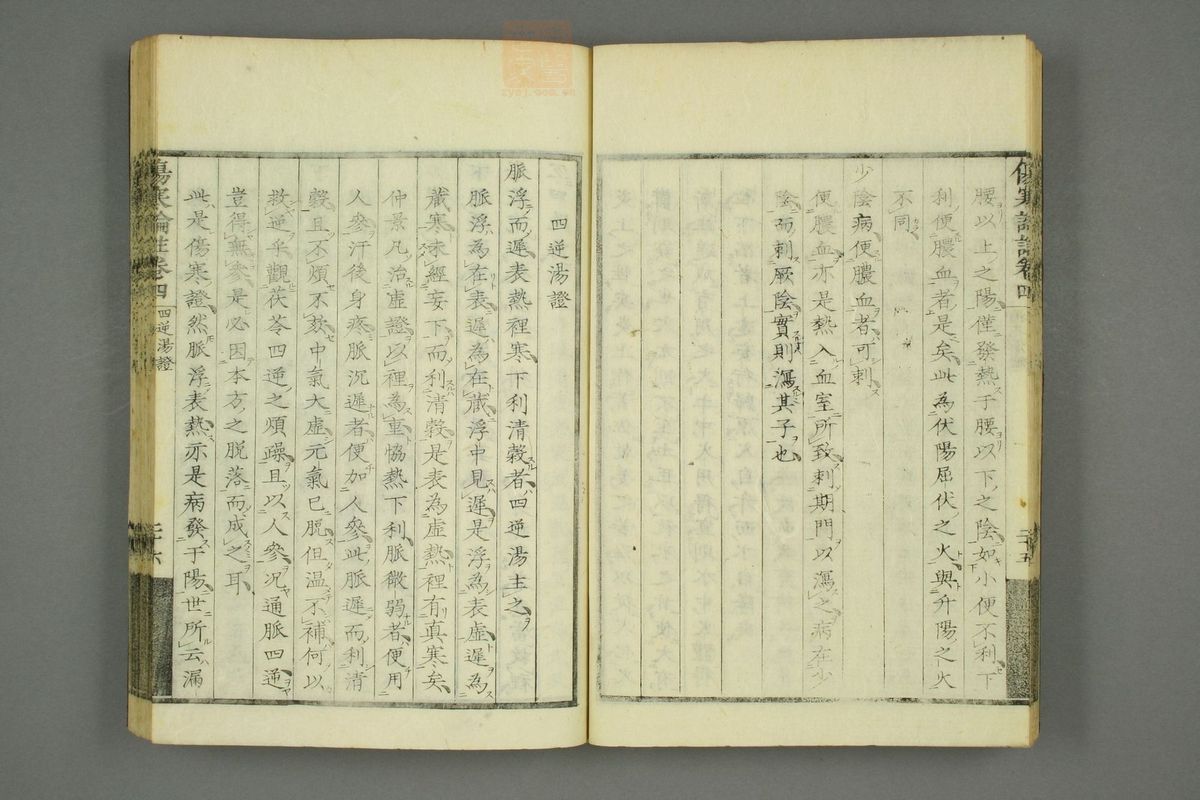 傷寒論註卷四
二十五
腰以上之陽僅發熱于腰以下之陰如小便不利下
利便膿血者是矣此為伏陽屈伏之火與升陽之火
不同
少陰病便膿血者可刺
便膿血亦是熱入血室所致刺期門以瀉之病在少
陰而刺厥陰實則瀉其子也
四逆湯證
脈浮而遲表熱裡寒下利清穀者四逆湯主之
脈浮為在表遲為在藏浮中見遲是浮為表虛遲為
藏寒未經妄下而利清穀是表為虛熱裡有真寒矣
仲景凡治虛證以裡為重恊熱下利脈微弱者便用
人參汗後身疼脈沉遲者便加人參此脈遲而利清
穀且不煩不欬中氣大虛元氣已脫但温不補何以
救逆乎觀茯苓四逆之煩躁且以人參況通脈四逆
豈得無參是必因本方之脫落而成之耳
此是傷寒證然脈浮表熱亦是病發于陽世所云漏
傷寒論註卷四
四逆湯證
二十六